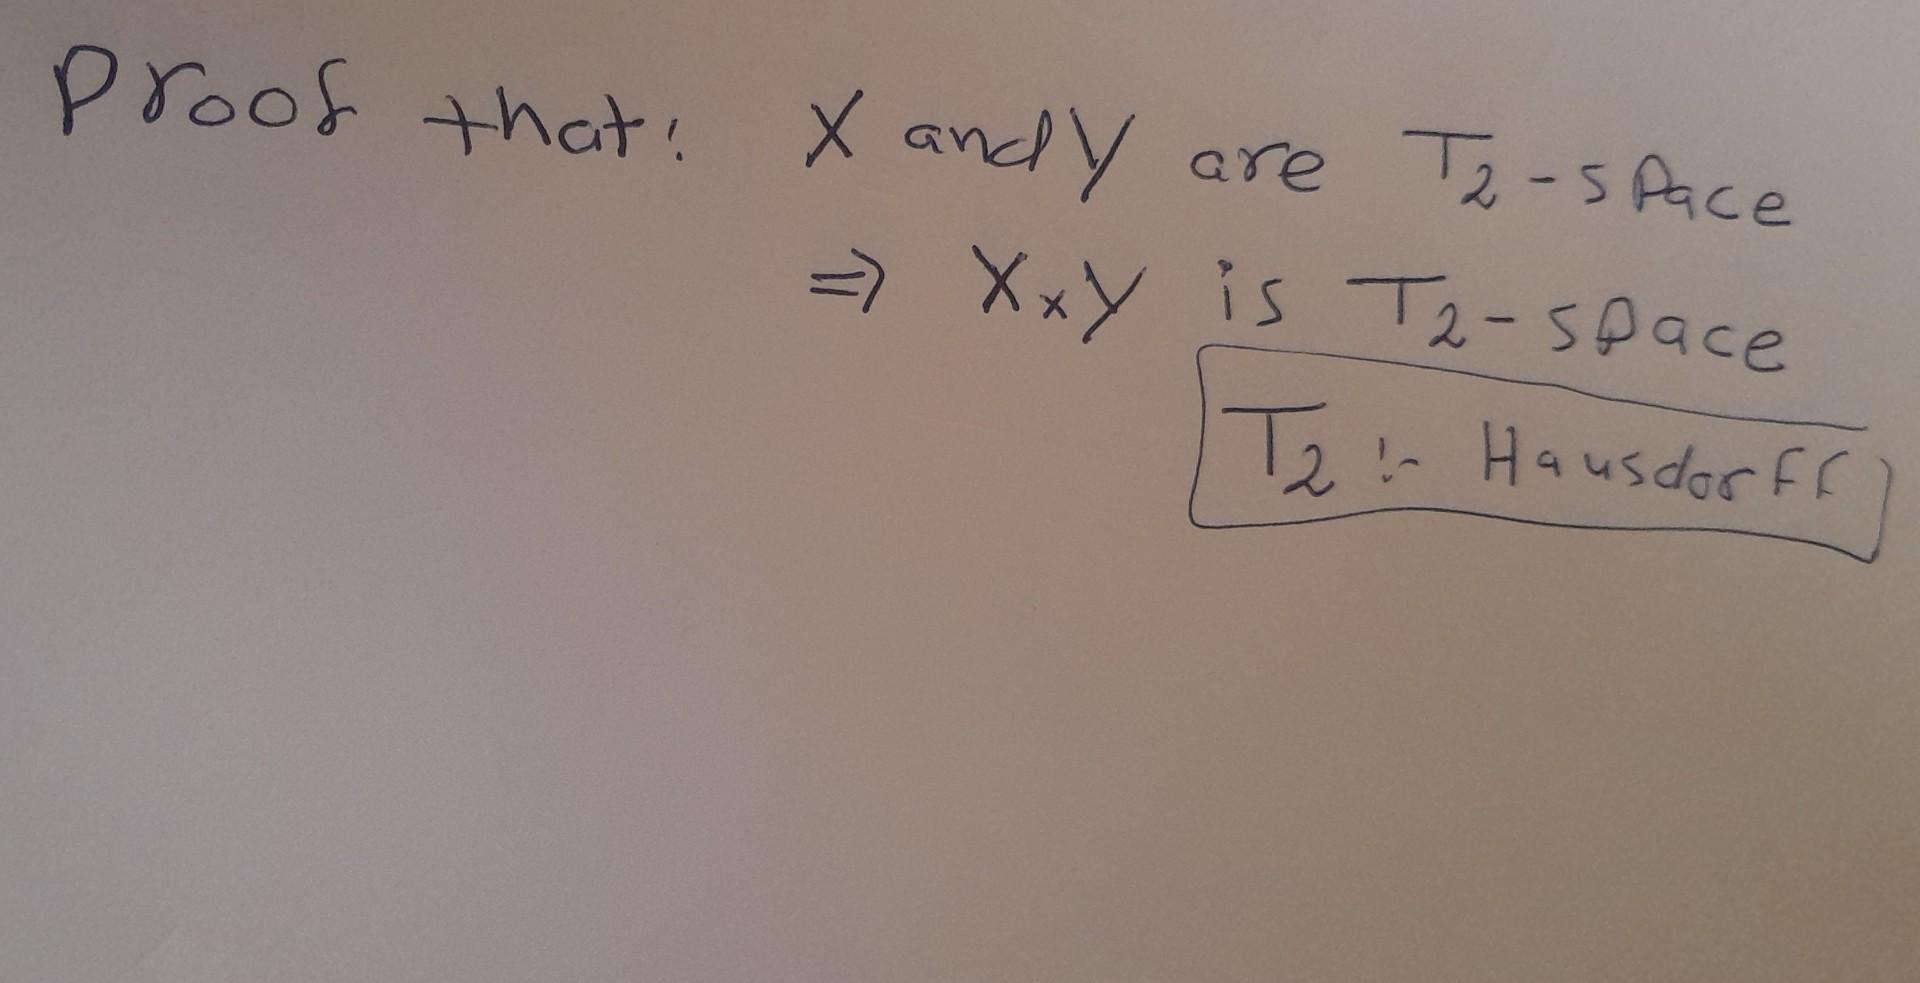 Proof that: X and Y are T₂-space
⇒ X×Y is T₂-space
T₂ :- Hausdorff